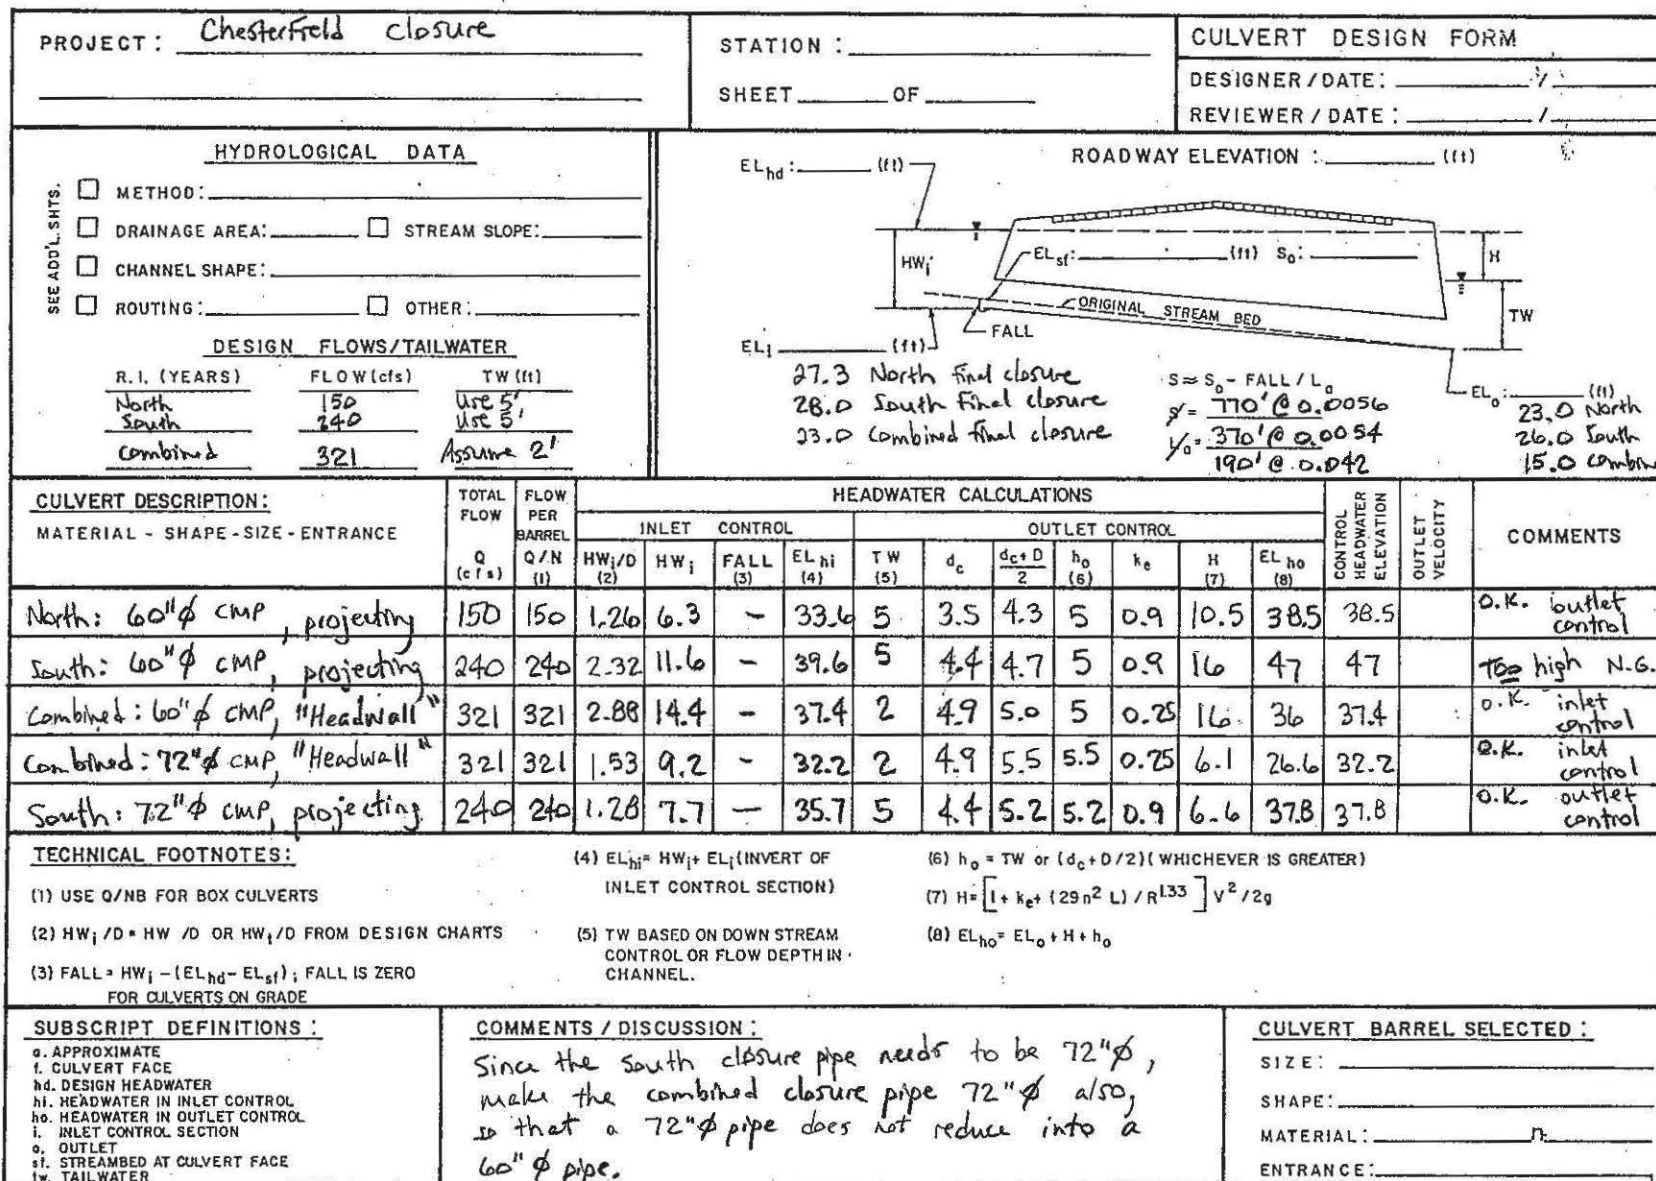 PROJECT: Chesterfield closure
STATION:
SHEET OF
CULVERT DESIGN FORM
DESIGNER / DATE: /
REVIEWER / DATE: /
HYDROLOGICAL DATA
SEE ADD'L. SHTS.
METHOD:
DRAINAGE AREA: STREAM SLOPE:
CHANNEL SHAPE:
ROUTING: OTHER:
DESIGN FLOWS/TAILWATER
R.I. (YEARS) FLOW (cfs) TW (ft)
North 150 Use 5'
South 240 Use 5'
Combined 321 Assume 2'
EL hd : (ft)
ROADWAY ELEVATION : (ft)
HW i
EL sf : (ft) S o :
H
ORIGINAL STREAM BED
TW
FALL
EL i (ft)
27.3 North final closure
28.0 South Final closure
23.0 Combined final closure
S ≈ S o - FALL / L a
S = 770' @ 0.0056
L a = 370' @ 0.0054
190' @ 0.042
EL o : (ft)
23.0 North
26.0 South
15.0 combin
CULVERT DESCRIPTION:
MATERIAL - SHAPE - SIZE - ENTRANCE
TOTAL FLOW Q (cfs)
FLOW PER BARREL Q/N (1)
HEADWATER CALCULATIONS
INLET CONTROL
OUTLET CONTROL
HW i /D (2) HW i FALL (3) EL hi (4) TW (5) d c d c + D / 2 h o (6) k e H (7) EL ho (8)
CONTROL HEADWATER ELEVATION
OUTLET VELOCITY
COMMENTS
North: 60"φ CMP, projecting 150 150 1.26 6.3 - 33.6 5 3.5 4.3 5 0.9 10.5 38.5 38.5 O.K. outlet control
South: 60"φ CMP, projecting 240 240 2.32 11.6 - 39.6 5 4.4 4.7 5 0.9 16 47 47 Too high N.G.
Combined: 60"φ CMP, "Headwall" 321 321 2.88 14.4 - 37.4 2 4.9 5.0 5 0.25 16 36 37.4 O.K. inlet control
Combined: 72"φ CMP, "Headwall" 321 321 1.53 9.2 - 32.2 2 4.9 5.5 5.5 0.25 6.1 26.6 32.2 O.K. inlet control
South: 72"φ CMP, projecting 240 240 1.28 7.7 - 35.7 5 4.4 5.2 5.2 0.9 6.6 37.8 37.8 O.K. outlet control
TECHNICAL FOOTNOTES:
(1) USE Q/NB FOR BOX CULVERTS
(2) HW i /D = HW /D OR HW i /D FROM DESIGN CHARTS
(3) FALL = HW i - (EL hd - EL sf) ; FALL IS ZERO
FOR CULVERTS ON GRADE
(4) EL hi = HW i + EL i (INVERT OF
INLET CONTROL SECTION)
(5) TW BASED ON DOWN STREAM
CONTROL OR FLOW DEPTH IN
CHANNEL.
(6) h o = TW or (d c + D/2) (WHICHEVER IS GREATER)
(7) H = [1 + k e + (29 n² L) / R^1.33] V² / 2g
(8) EL ho = EL o + H + h o
SUBSCRIPT DEFINITIONS :
a. APPROXIMATE
f. CULVERT FACE
hd. DESIGN HEADWATER
hi. HEADWATER IN INLET CONTROL
ho. HEADWATER IN OUTLET CONTROL
i. INLET CONTROL SECTION
o. OUTLET
sf. STREAMBED AT CULVERT FACE
tw. TAILWATER
COMMENTS / DISCUSSION :
Since the south closure pipe needs to be 72"φ,
make the combined closure pipe 72"φ also,
so that a 72"φ pipe does not reduce into a
60"φ pipe.
CULVERT BARREL SELECTED :
SIZE:
SHAPE:
MATERIAL: n
ENTRANCE: